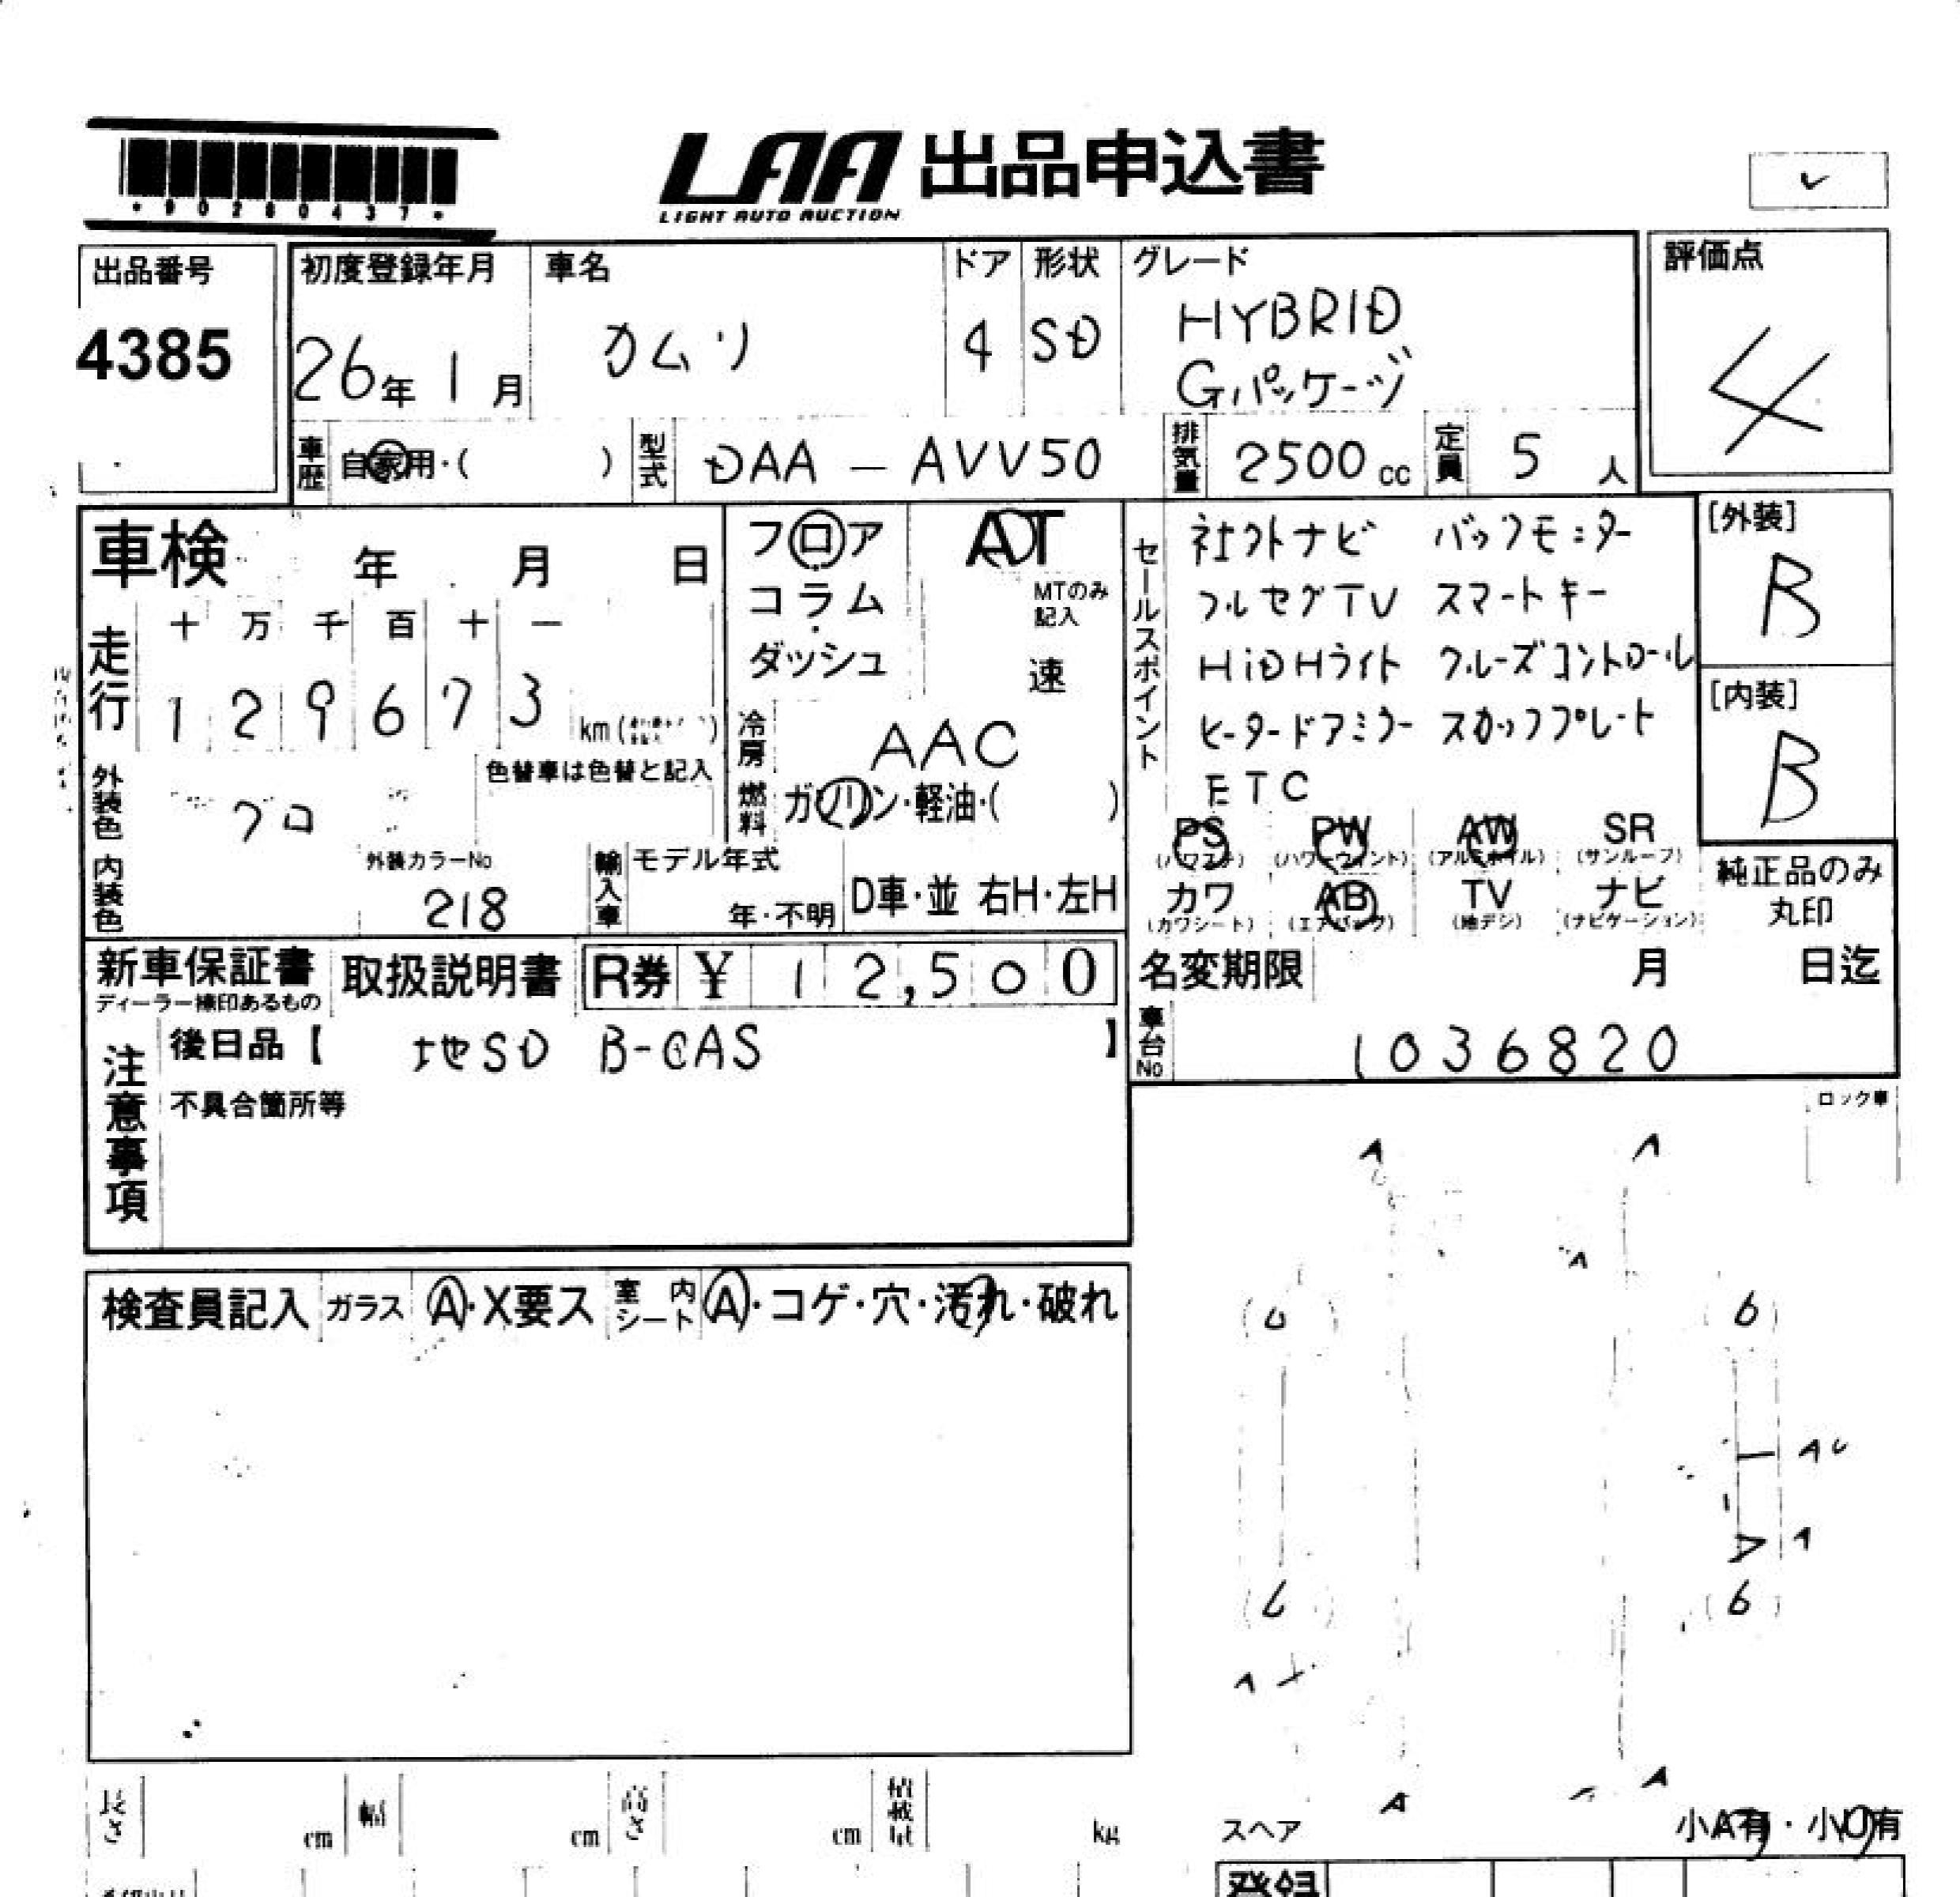 *90280437*
LAA 出品申込書
LIGHT AUTO AUCTION
出品番号
4385
初度登録年月
26年 1月
車名
カムリ
ドア
4
形状
SD
グレード
HYBRID
Gパッケージ
評価点
4
車歴 自家用・( )
型式 DAA - AVV50
排気量 2500cc
定員 5人
車検 年 月 日
走行 十 万 千 百 十 一
129673 km
色替車は色替と記入
外装色 クロ
内装色
外装カラーNo
218
フロア
コラム
ダッシュ
AT
MTのみ記入
速
冷房 AAC
燃料 ガソリン・軽油・( )
輸入車 モデル年式
年・不明
D車・並 右H・左H
セールスポイント
社外ナビ バックモニター
フルセグTV スマートキー
HiDHライト クルーズコントロール
ヒータードアミラー スカッフプレート
ETC
PS PW AW SR
(パワステ) (パワーウィンド) (アルミホイル) (サンルーフ)
カワ AB TV ナビ
(カワシート) (エアバック) (地デジ) (ナビゲーション)
[外装]
B
[内装]
B
純正品のみ
丸印
新車保証書
ディーラー捺印あるもの
取扱説明書
R券 ¥ 12,500
名変期限 月 日迄
車台No 1036820
注意事項
後日品【 地SD B-CAS 】
不具合箇所等
ロック車
検査員記入 ガラス A・X要ス 室内シート A・コゲ・穴・汚れ・破れ
A A
A
6 6
AU
A
6 6
A
A A
長さ cm 幅 cm 高さ cm 積載量 kg
スペア
小A有・小U有
登録